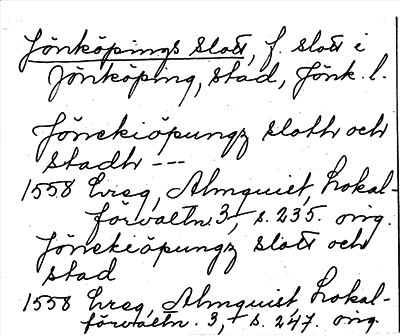 Jönköpings slott, f. slott i
Jönköping, stad, Jönk. l.
Jönekiöpungz sloth och
stadh ---
1558 Lreg, Almquist, Lokal-
förvaltn. 3, s. 235. orig.
Jönekiöpungz slott och
stad
1558 Lreg, Almquist Lokal-
förvaltn. 3, s. 247. orig.